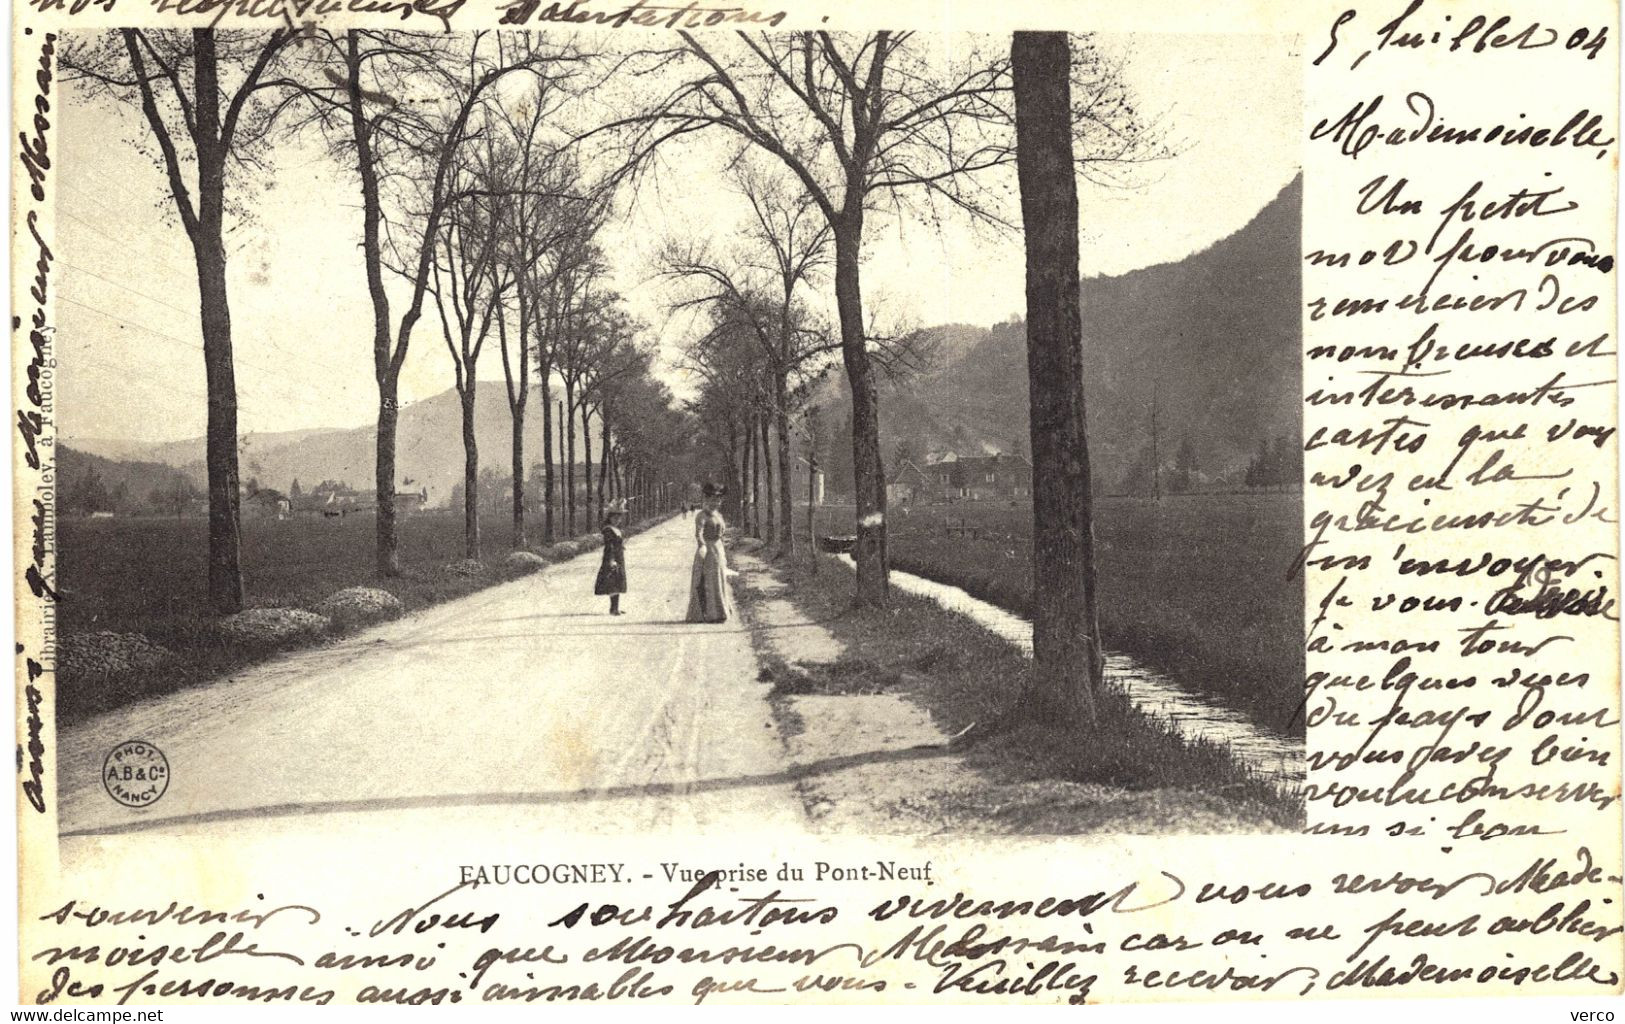 5 Juillet 04
Mademoiselle,
Un petit
mot pour vous
remercier des
nombreuses et
intéressantes
cartes que vous
avez eu la
gracieuseté de
m'envoyer.
Je vous
à mon tour
quelques vues
du pays dont
vous avez bien
voulu conserver
un si bon
souvenir. Nous souhaitons vivement vous revoir Made-
moiselle ainsi que Monsieur Messain car on ne peut oublier
des personnes aussi aimables que vous. Veuillez recevoir, Mademoiselle
ainsi que Monsieur Messain
nos respectueuses salutations.
FAUCOGNEY. - Vue prise du Pont-Neuf
Librairie X. Lamboley, à Faucogney
PHOT.
A.B & Cº
NANCY
www.delcampe.net
verco